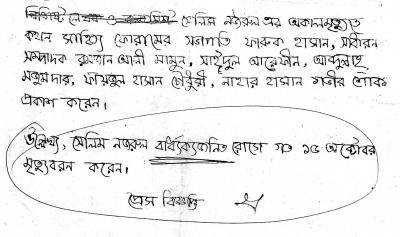 বিশিষ্ট লেখক ও কলামিস্ট সেলিম নজরুল এর অকালমৃত্যুতে
কথন সাহিত্য ফোরামের সভাপতি ফারুক হাসান, সাধারন
সম্পাদক রুস্তান আলী মামুন, সাইদুল আরেফীন, আব্দুল্লাহ
মজুমদার, ফায়জুল হাসান চৌধুরী, নাহার হাসান গভীর শোক
প্রকাশ করেন।
উল্লেখ্য, সেলিম নজরুল বার্ধক্যজনিত রোগে গত ১৫ অক্টোবর
মৃত্যুবরন করেন।
প্রেস বিজ্ঞপ্তি